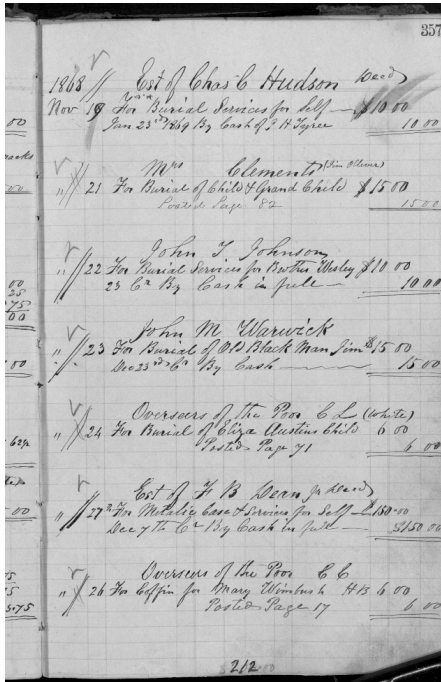 357
1868 // Est of Chas C Hudson Decd
Nov 19 For Burial Services for Self — $10 00
Jan 23rd 1869 By Cash of J H Tyree 10 00
Mrs Clements (Jim Oliver)
" // 21 For Burial of Child & Grand Child $15 00
Posted Page 82 15 00
John T Johnson
" // 22 For Burial Services for Brother Wesley $10 00
23 Cr By Cash in full — 10 00
John M Warwick
" // 23 For Burial of Old Black Man Jim $15 00
Dec 23rd Cr By Cash — 15 00
Overseers of the Poor C L (White)
" // 24 For Burial of Eliza Austins Child 6 00
Posted Page 71 6 00
Est of F B Dean Jr Decd
" // 27 For Metalic Case & Services for Self — $150.00
Dec 7th Cr By Cash in full — $150 00
Overseers of the Poor C C
" 26 For Coffin for Mary Wimbush H B 6 00
Posted Page 17 6 00
212 00